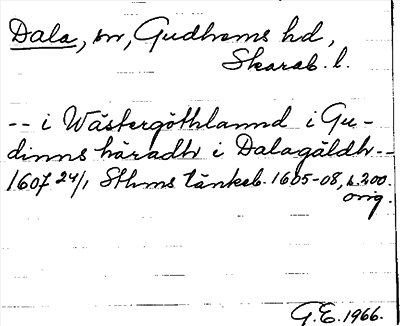 Dala, sn, Gudhems hd,
Skarab. l.
-- i Wästergöthlannd i Gu-
dinns häradh i Dalagäldh --
1607 24/1 Sthms tänkeb. 1605-08, s. 200.
orig.
G.E. 1966.